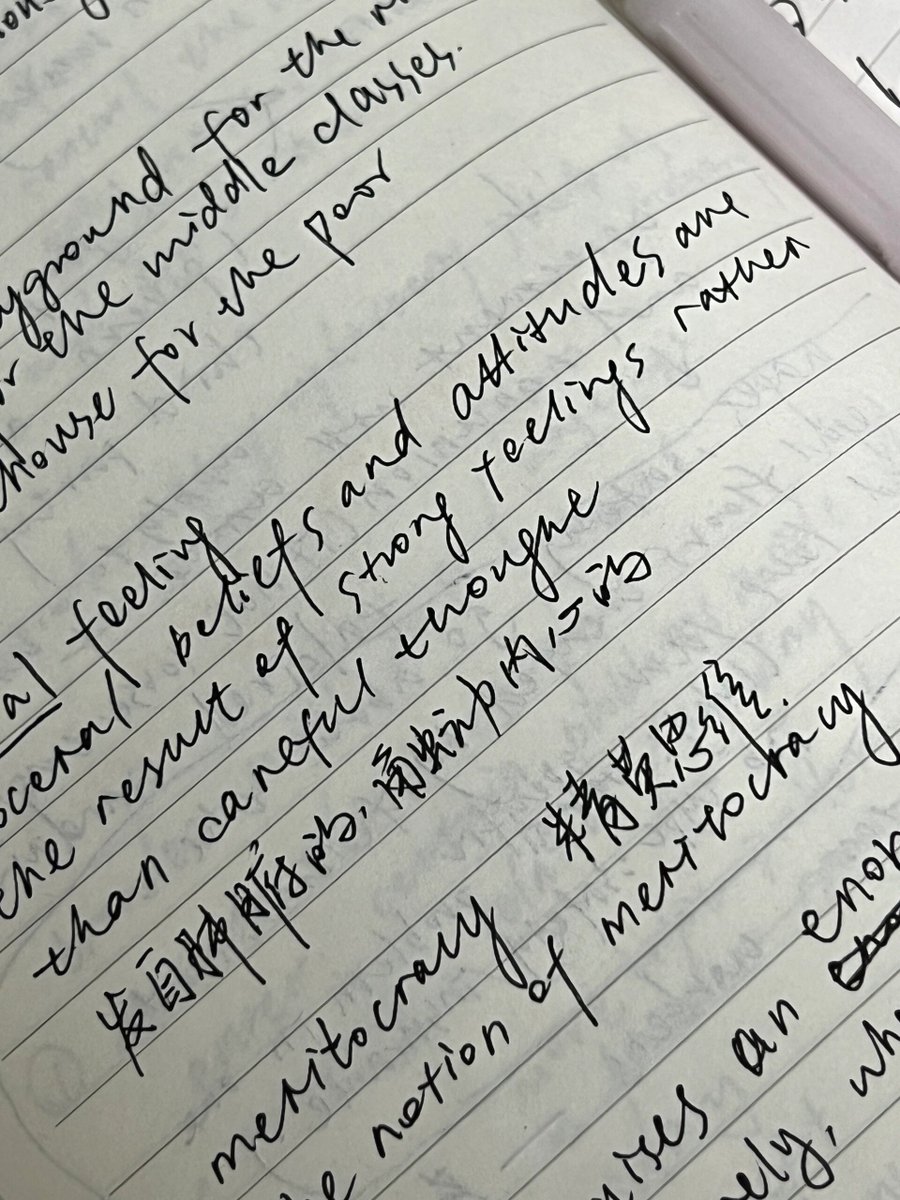 yground for the
the middle classes.
house for the poor
al feeling
sceral beliefs and attitudes are
the result of strong feelings rather
than careful thought
发自肺腑的,内心的
meritocracy 精英思维.
notion of meritocracy
ises an enor
ely, wh